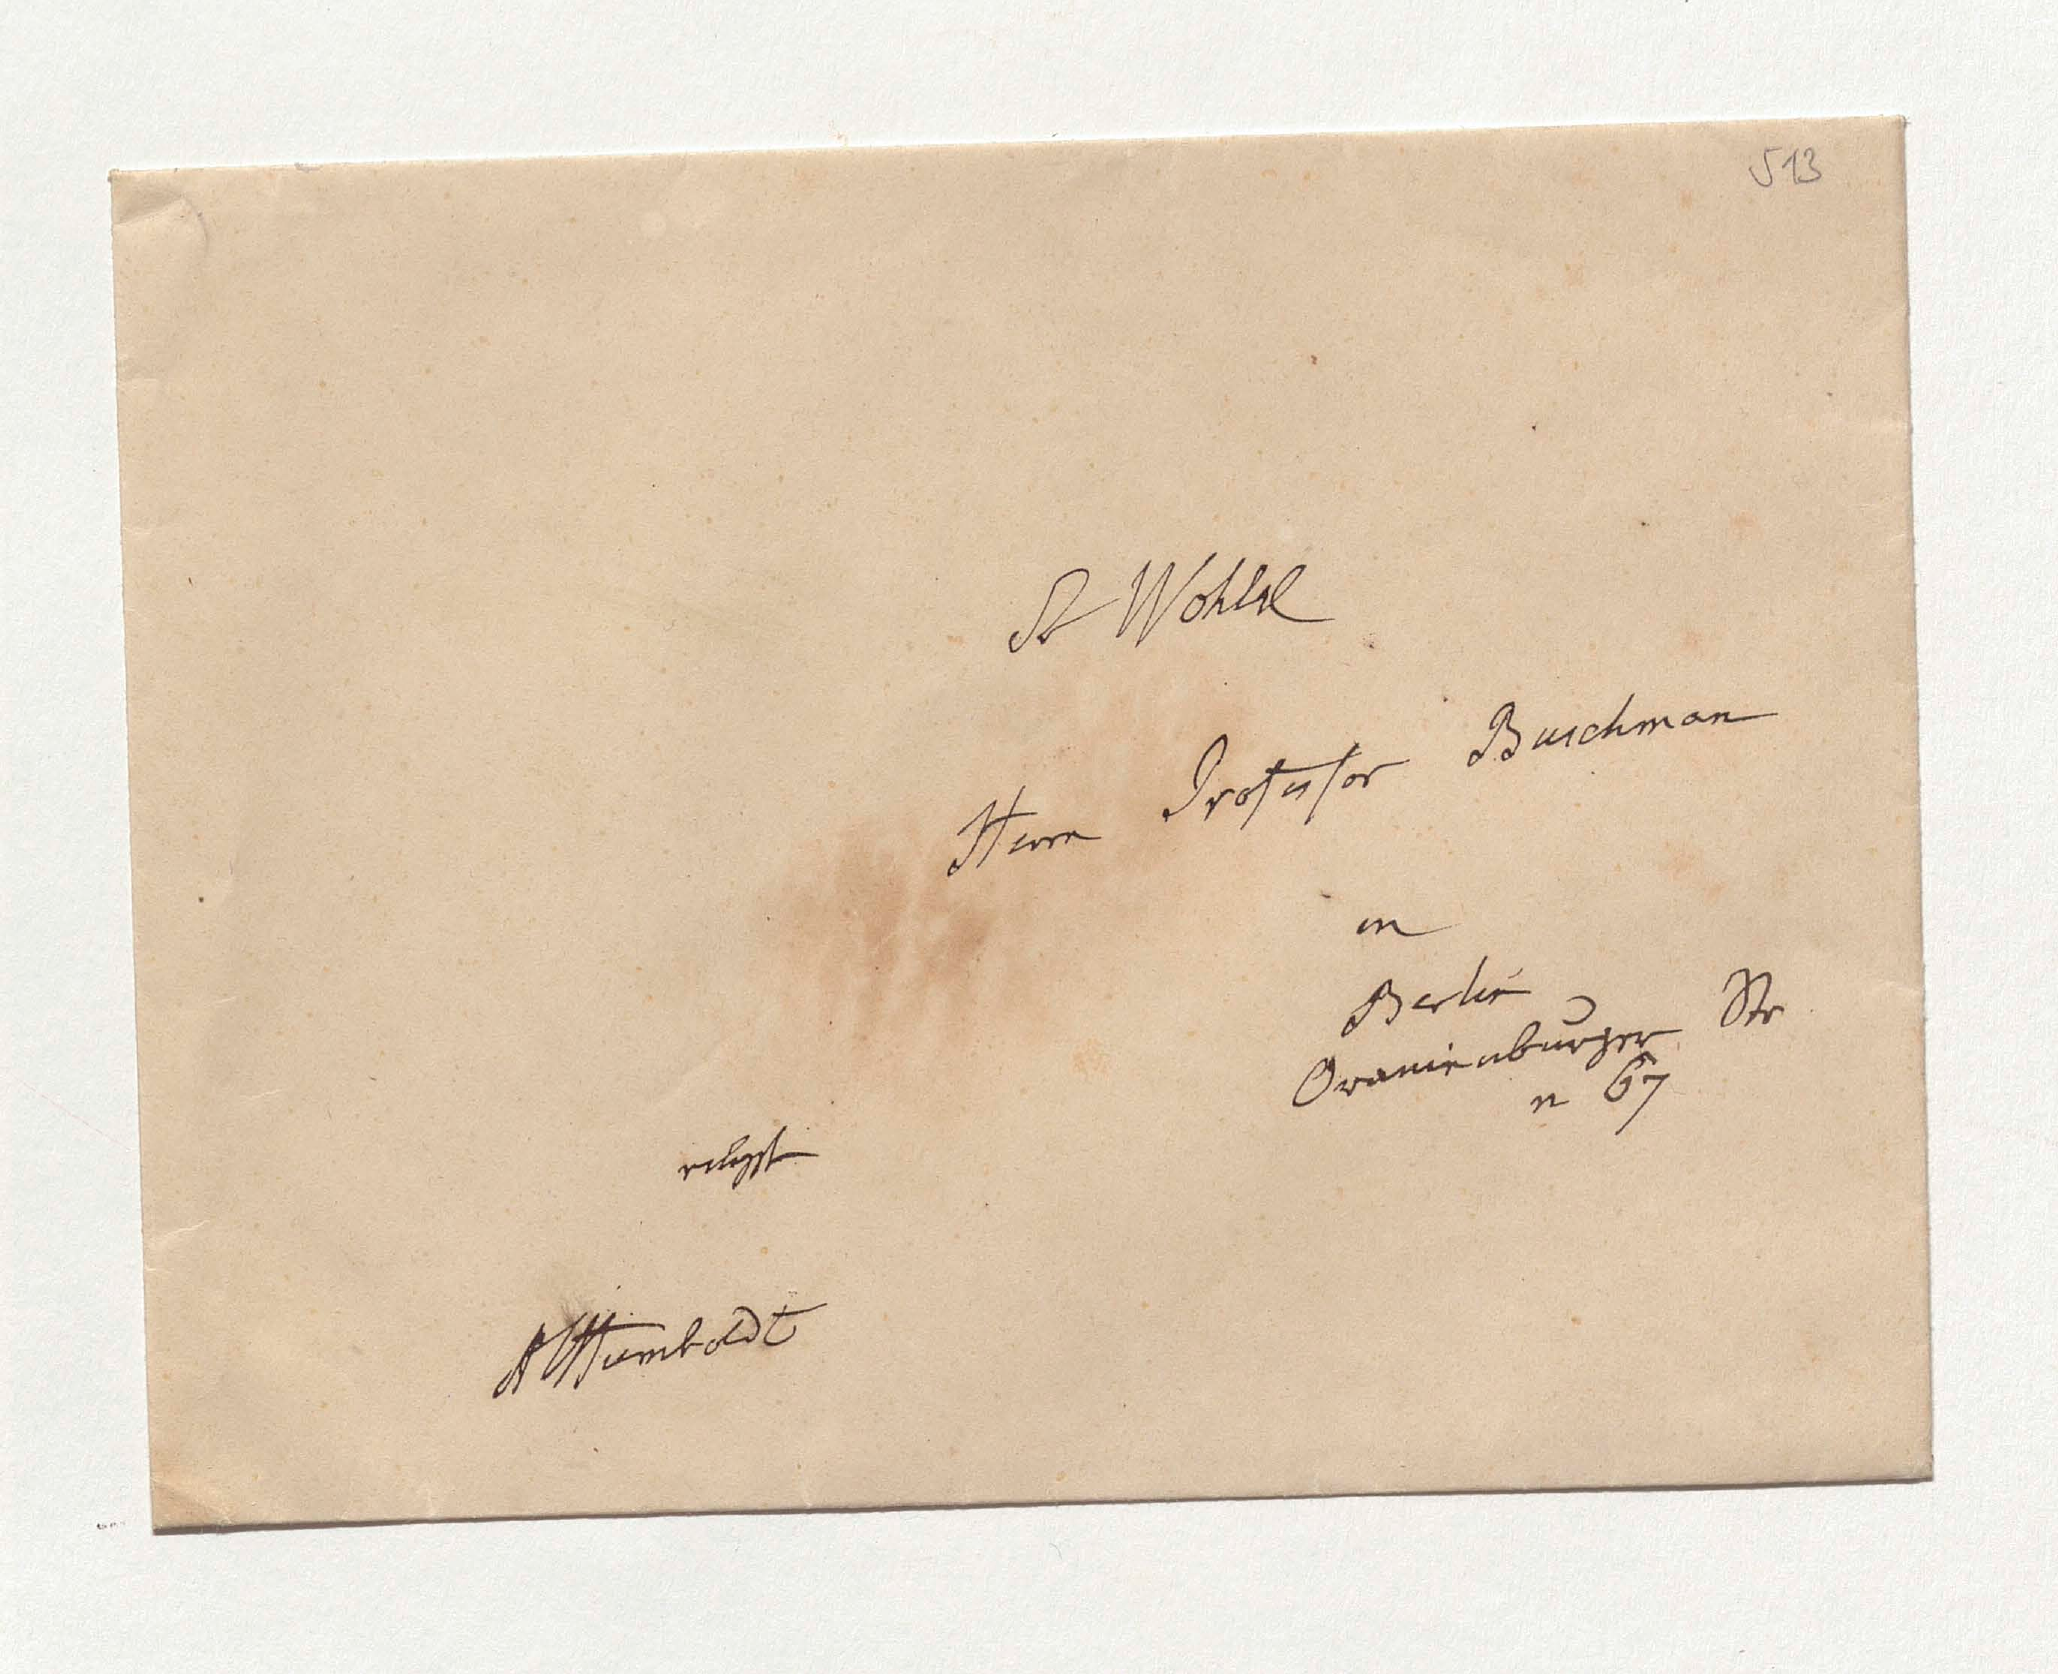 513
Sr Wohlgl
Herrn Professor Buschman
in
Berlin
Oranienburger Str
n 67
AlHumboldt